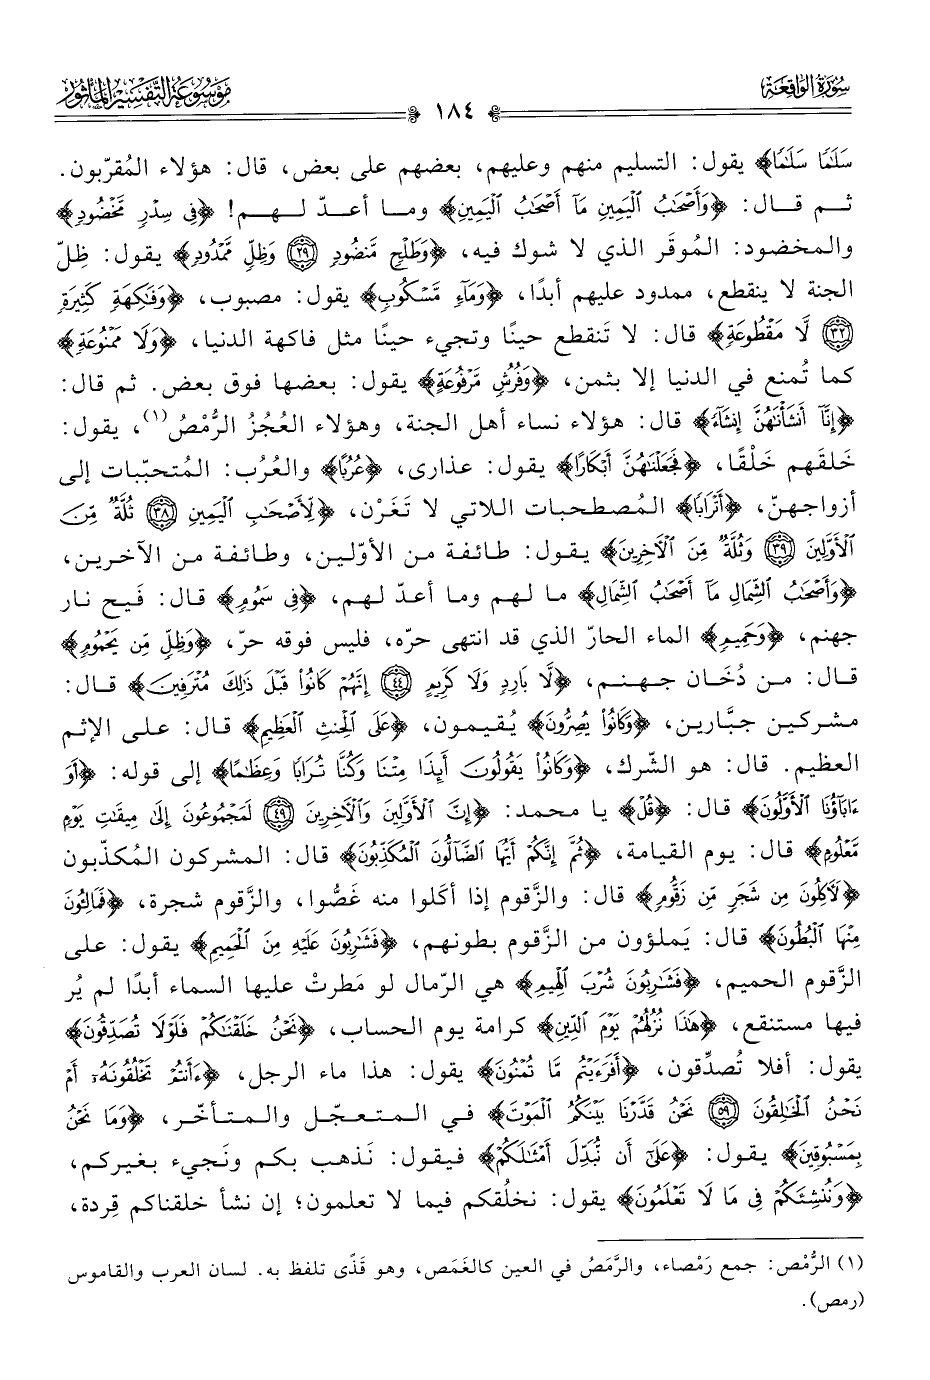 سُورَةُ الوَاقِعَة
١٨٤
مَوْسُوعَةُ التَّفْسِيرِ المَأْثُورِ
سَلَٰمًا سَلَٰمًا﴾ يقول: التسليم منهم وعليهم، بعضهم على بعض، قال: هؤلاء المُقرّبون.
ثم قال: ﴿وَأَصْحَٰبُ ٱلْيَمِينِ مَآ أَصْحَٰبُ ٱلْيَمِينِ﴾ وما أعدّ لهم! ﴿فِى سِدْرٍ مَّخْضُودٍ﴾
والمخضود: المُوقَر الذي لا شوك فيه، ﴿وَطَلْحٍ مَّنضُودٍ ۝٢٩ وَظِلٍّ مَّمْدُودٍ﴾ يقول: ظِلّ
الجنة لا ينقطع، ممدود عليهم أبدًا، ﴿وَمَآءٍ مَّسْكُوبٍ﴾ يقول: مصبوب، ﴿وَفَٰكِهَةٍ كَثِيرَةٍ
۝٣٢ لَّا مَقْطُوعَةٍ﴾ قال: لا تَنقطع حينًا وتجيء حينًا مثل فاكهة الدنيا، ﴿وَلَا مَمْنُوعَةٍ﴾
كما تُمنع في الدنيا إلا بثمن، ﴿وَفُرُشٍ مَّرْفُوعَةٍ﴾ يقول: بعضها فوق بعض. ثم قال:
﴿إِنَّآ أَنشَأْنَٰهُنَّ إِنشَآءً﴾ قال: هؤلاء نساء أهل الجنة، وهؤلاء العُجُزُ الرُّمْصُ(١)، يقول:
خَلقَهم خَلْقًا، ﴿فَجَعَلْنَٰهُنَّ أَبْكَارًا﴾ يقول: عذارى، ﴿عُرُبًا﴾ والعُرُب: المُتحبّبات إلى
أزواجهنّ، ﴿أَتْرَابًا﴾ المُصطحبات اللاتي لا تَغَرْن، ﴿لِّأَصْحَٰبِ ٱلْيَمِينِ ۝٣٨ ثُلَّةٌ مِّنَ
ٱلْأَوَّلِينَ ۝٣٩ وَثُلَّةٌ مِّنَ ٱلْآخِرِينَ﴾ يقول: طائفة من الأوّلين، وطائفة من الآخرين،
﴿وَأَصْحَٰبُ ٱلشِّمَالِ مَآ أَصْحَٰبُ ٱلشِّمَالِ﴾ ما لهم وما أعدّ لهم، ﴿فِى سَمُومٍ﴾ قال: فَيح نار
جهنم، ﴿وَحَمِيمٍ﴾ الماء الحارّ الذي قد انتهى حرّه، فليس فوقه حرّ، ﴿وَظِلٍّ مِّن يَحْمُومٍ﴾
قال: من دُخَان جهنم، ﴿لَّا بَارِدٍ وَلَا كَرِيمٍ ۝٤٤ إِنَّهُمْ كَانُوا۟ قَبْلَ ذَٰلِكَ مُتْرَفِينَ﴾ قال:
مشركين جبَّارين، ﴿وَكَانُوا۟ يُصِرُّونَ﴾ يُقيمون، ﴿عَلَى ٱلْحِنثِ ٱلْعَظِيمِ﴾ قال: على الإثم
العظيم. قال: هو الشّرك، ﴿وَكَانُوا۟ يَقُولُونَ أَئِذَا مِتْنَا وَكُنَّا تُرَابًا وَعِظَٰمًا﴾ إلى قوله: ﴿أَوَ
ءَابَآؤُنَا ٱلْأَوَّلُونَ﴾ قال: ﴿قُلْ﴾ يا محمد: ﴿إِنَّ ٱلْأَوَّلِينَ وَٱلْآخِرِينَ ۝٤٩ لَمَجْمُوعُونَ إِلَىٰ مِيقَٰتِ يَوْمٍ
مَّعْلُومٍ﴾ قال: يوم القيامة، ﴿ثُمَّ إِنَّكُمْ أَيُّهَا ٱلضَّآلُّونَ ٱلْمُكَذِّبُونَ﴾ قال: المشركون المُكذّبون
﴿لَآكِلُونَ مِن شَجَرٍ مِّن زَقُّومٍ﴾ قال: والزَّقوم إذا أكَلوا منه غَصُّوا، والزَّقوم شجرة، ﴿فَمَالِـُٔونَ
مِنْهَا ٱلْبُطُونَ﴾ قال: يَملؤون من الزَّقوم بطونهم، ﴿فَشَٰرِبُونَ عَلَيْهِ مِنَ ٱلْحَمِيمِ﴾ يقول: على
الزَّقوم الحميم، ﴿فَشَٰرِبُونَ شُرْبَ ٱلْهِيمِ﴾ هي الرّمال لو مَطرتْ عليها السماء أبدًا لم يُر
فيها مستنقع، ﴿هَٰذَا نُزُلُهُمْ يَوْمَ ٱلدِّينِ﴾ كرامة يوم الحساب، ﴿نَحْنُ خَلَقْنَٰكُمْ فَلَوْلَا تُصَدِّقُونَ﴾
يقول: أفلا تُصدِّقون، ﴿أَفَرَءَيْتُم مَّا تُمْنُونَ﴾ يقول: هذا ماء الرجل، ﴿ءَأَنتُمْ تَخْلُقُونَهُۥٓ أَمْ
نَحْنُ ٱلْخَٰلِقُونَ ۝٥٩ نَحْنُ قَدَّرْنَا بَيْنَكُمُ ٱلْمَوْتَ﴾ في المتعجّل والمتأخّر، ﴿وَمَا نَحْنُ
بِمَسْبُوقِينَ﴾ يقول: ﴿عَلَىٰٓ أَن نُّبَدِّلَ أَمْثَٰلَكُمْ﴾ فيقول: نَذهب بكم ونَجيء بغيركم،
﴿وَنُنشِئَكُمْ فِى مَا لَا تَعْلَمُونَ﴾ يقول: نخلُقكم فيما لا تعلمون؛ إن نشأ خلقناكم قِردة،
(١) الرُّمْص: جمع رَمْصاء، والرَّمَصُ في العين كالغَمَص، وهو قَذًى تلفظ به. لسان العرب والقاموس
(رمص).